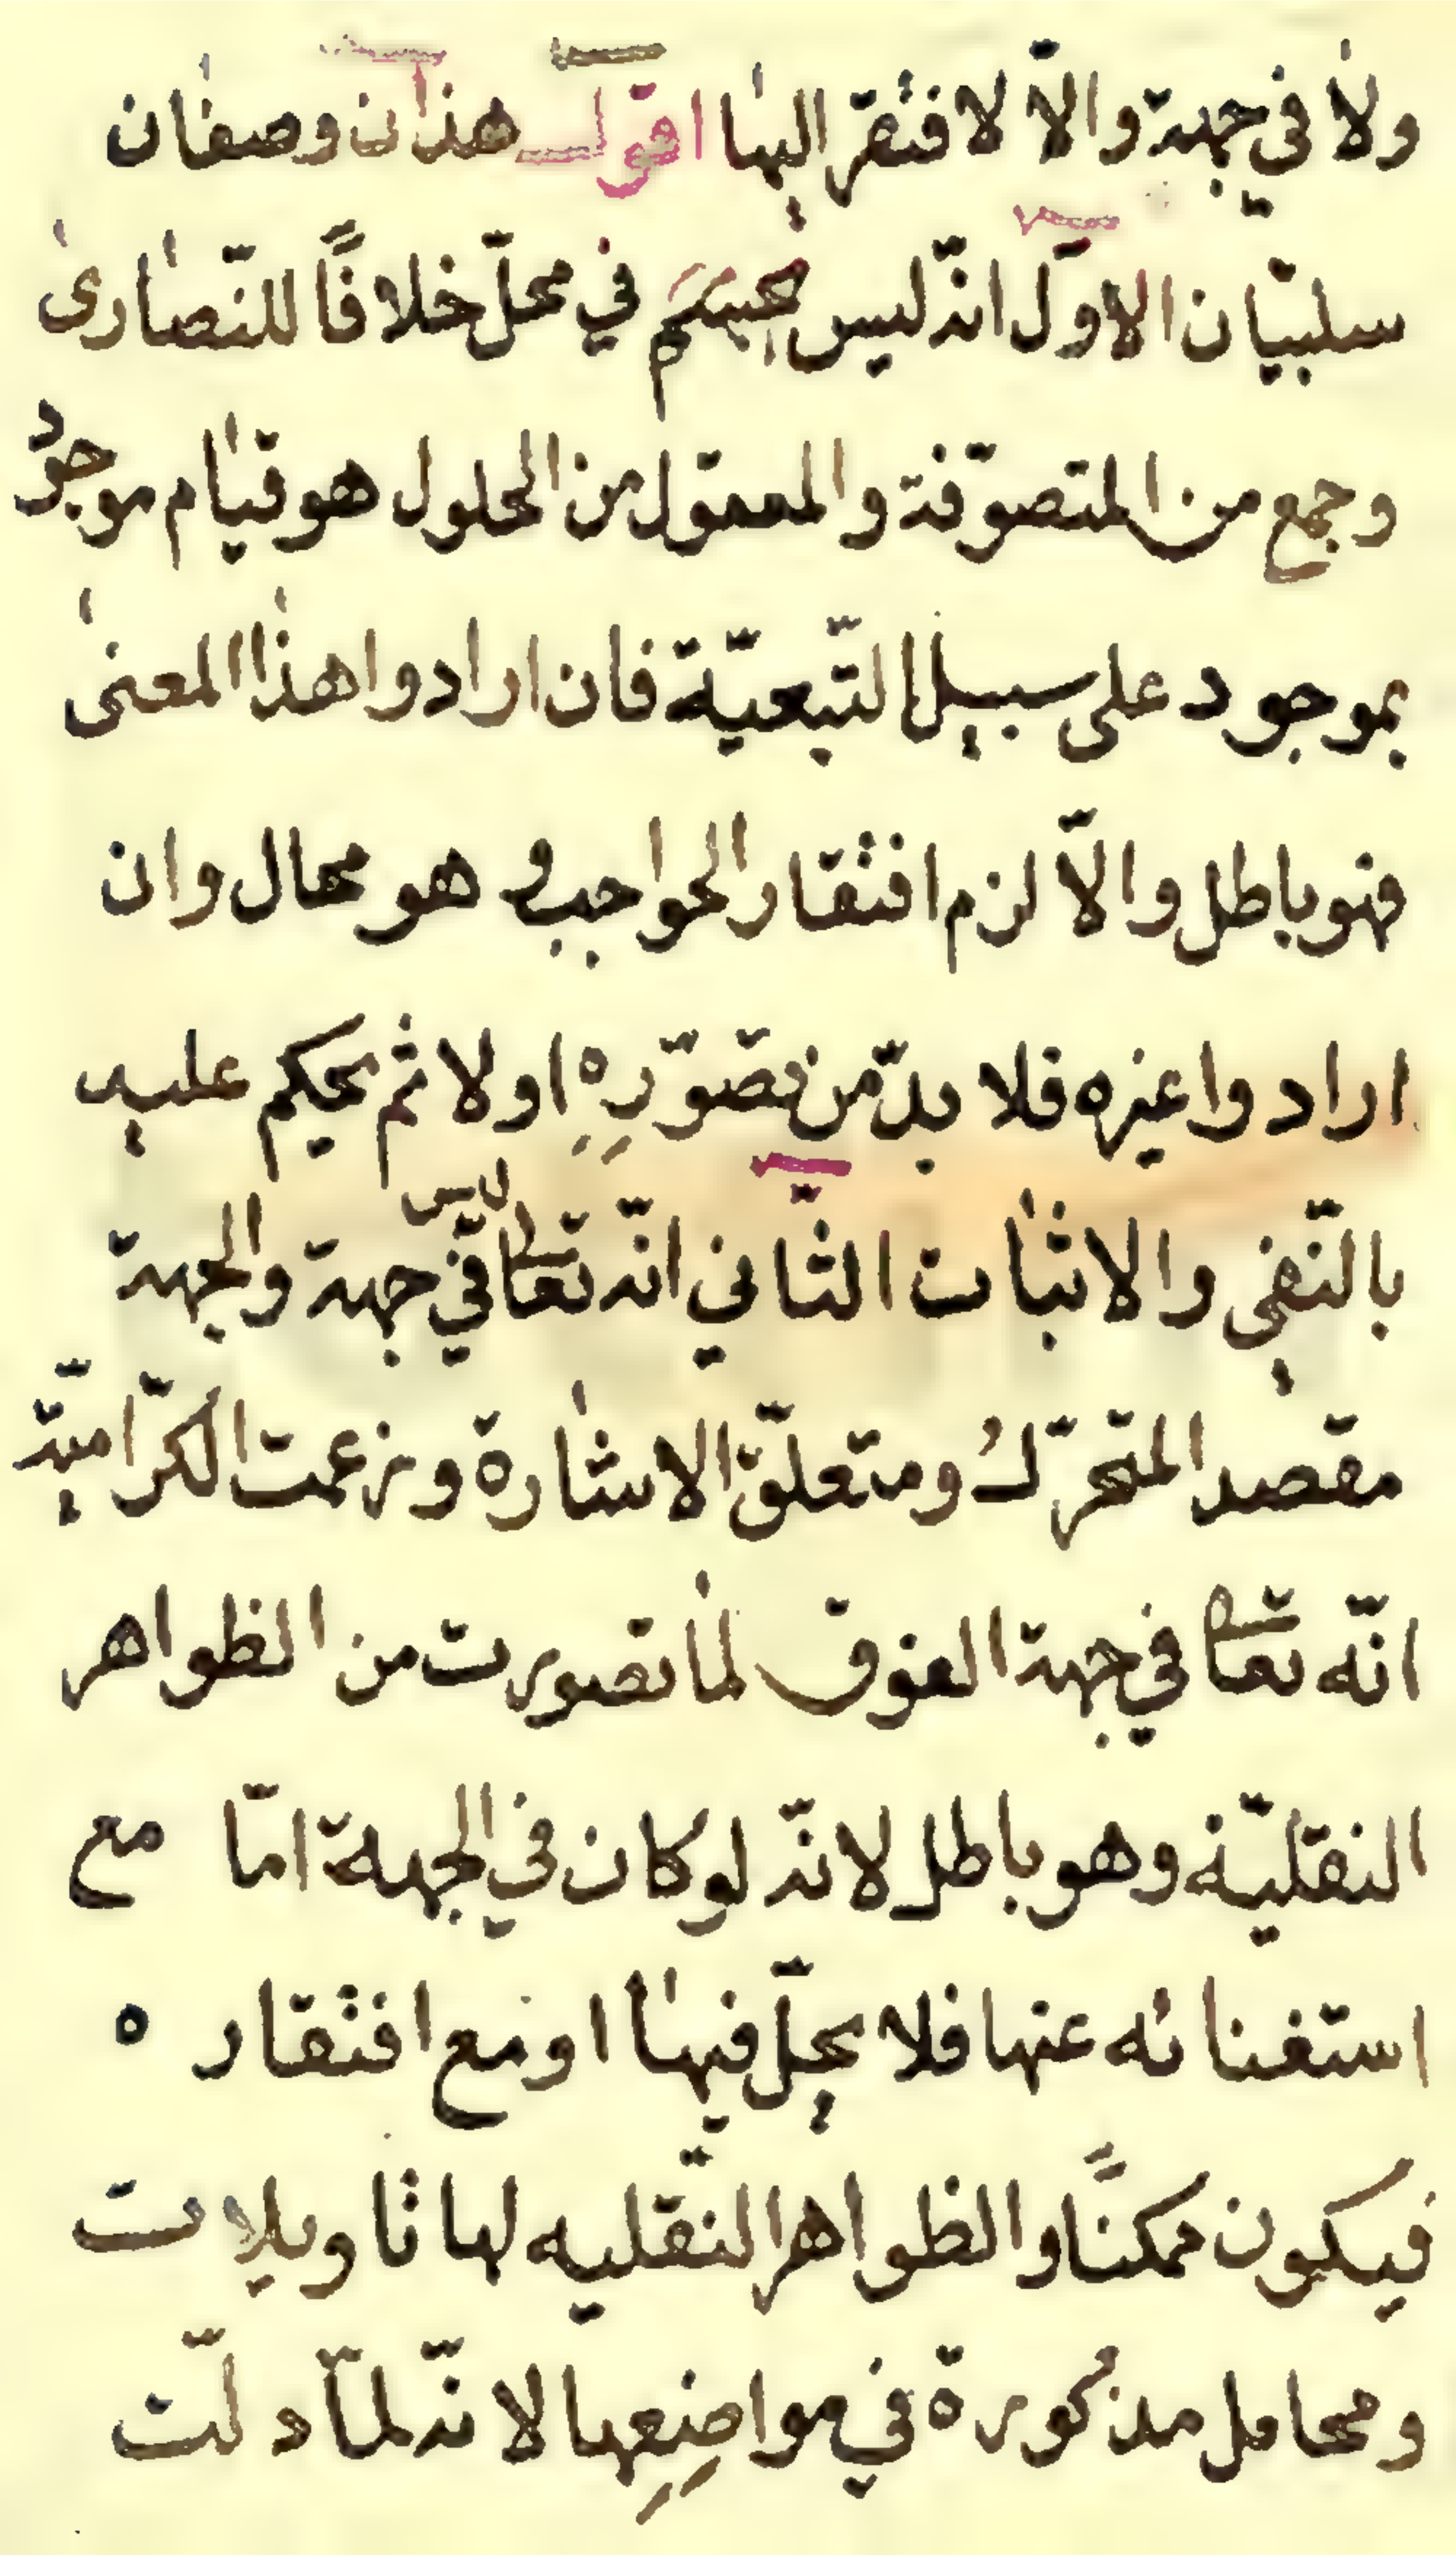 ولا في جهة والّا لافتقر اليها اقول هذان وصفان
سلبيّان الاوّل انّه ليس بجسم في محلّ خلافًا للنّصارى
وجمع من المتصوّفة والمعقول من الحلول هو قيام موجودٌ
بموجود على سبيل التّبعيّة فان ارادوا هذا المعنى
فهو باطل والّا لزم افتقار الواجب وهو محال وان
ارادوا غيره فلا بدّ من تصوّرِه اولا ثم يحكم عليه
بالنّفي والاثبات الثّاني انّه تعالى ليس في جهة والجهة
مقصد المتحرّك ومتعلّق الاشارة وزعمت الكرّاميّة
انّه تعالى في جهة الفوق لما تصورت من الظواهر
النقليّة وهو باطل لانّه لو كان في الجهة امّا مع
استغنائه عنها فلا يحلّ فيها او مع افتقاره
فيكون ممكنًا والظواهر النقليه لها تاويلات
ومحامل مذكورة في مواضِعِها لانّه لمّا دلّت